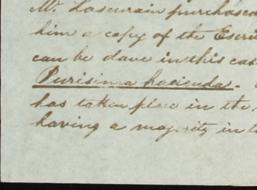 Mr. Lascurain purchased
him a copy of the Escri
can be done in this cas
Purisima hacienda.
has taken place in the
having a majority in t